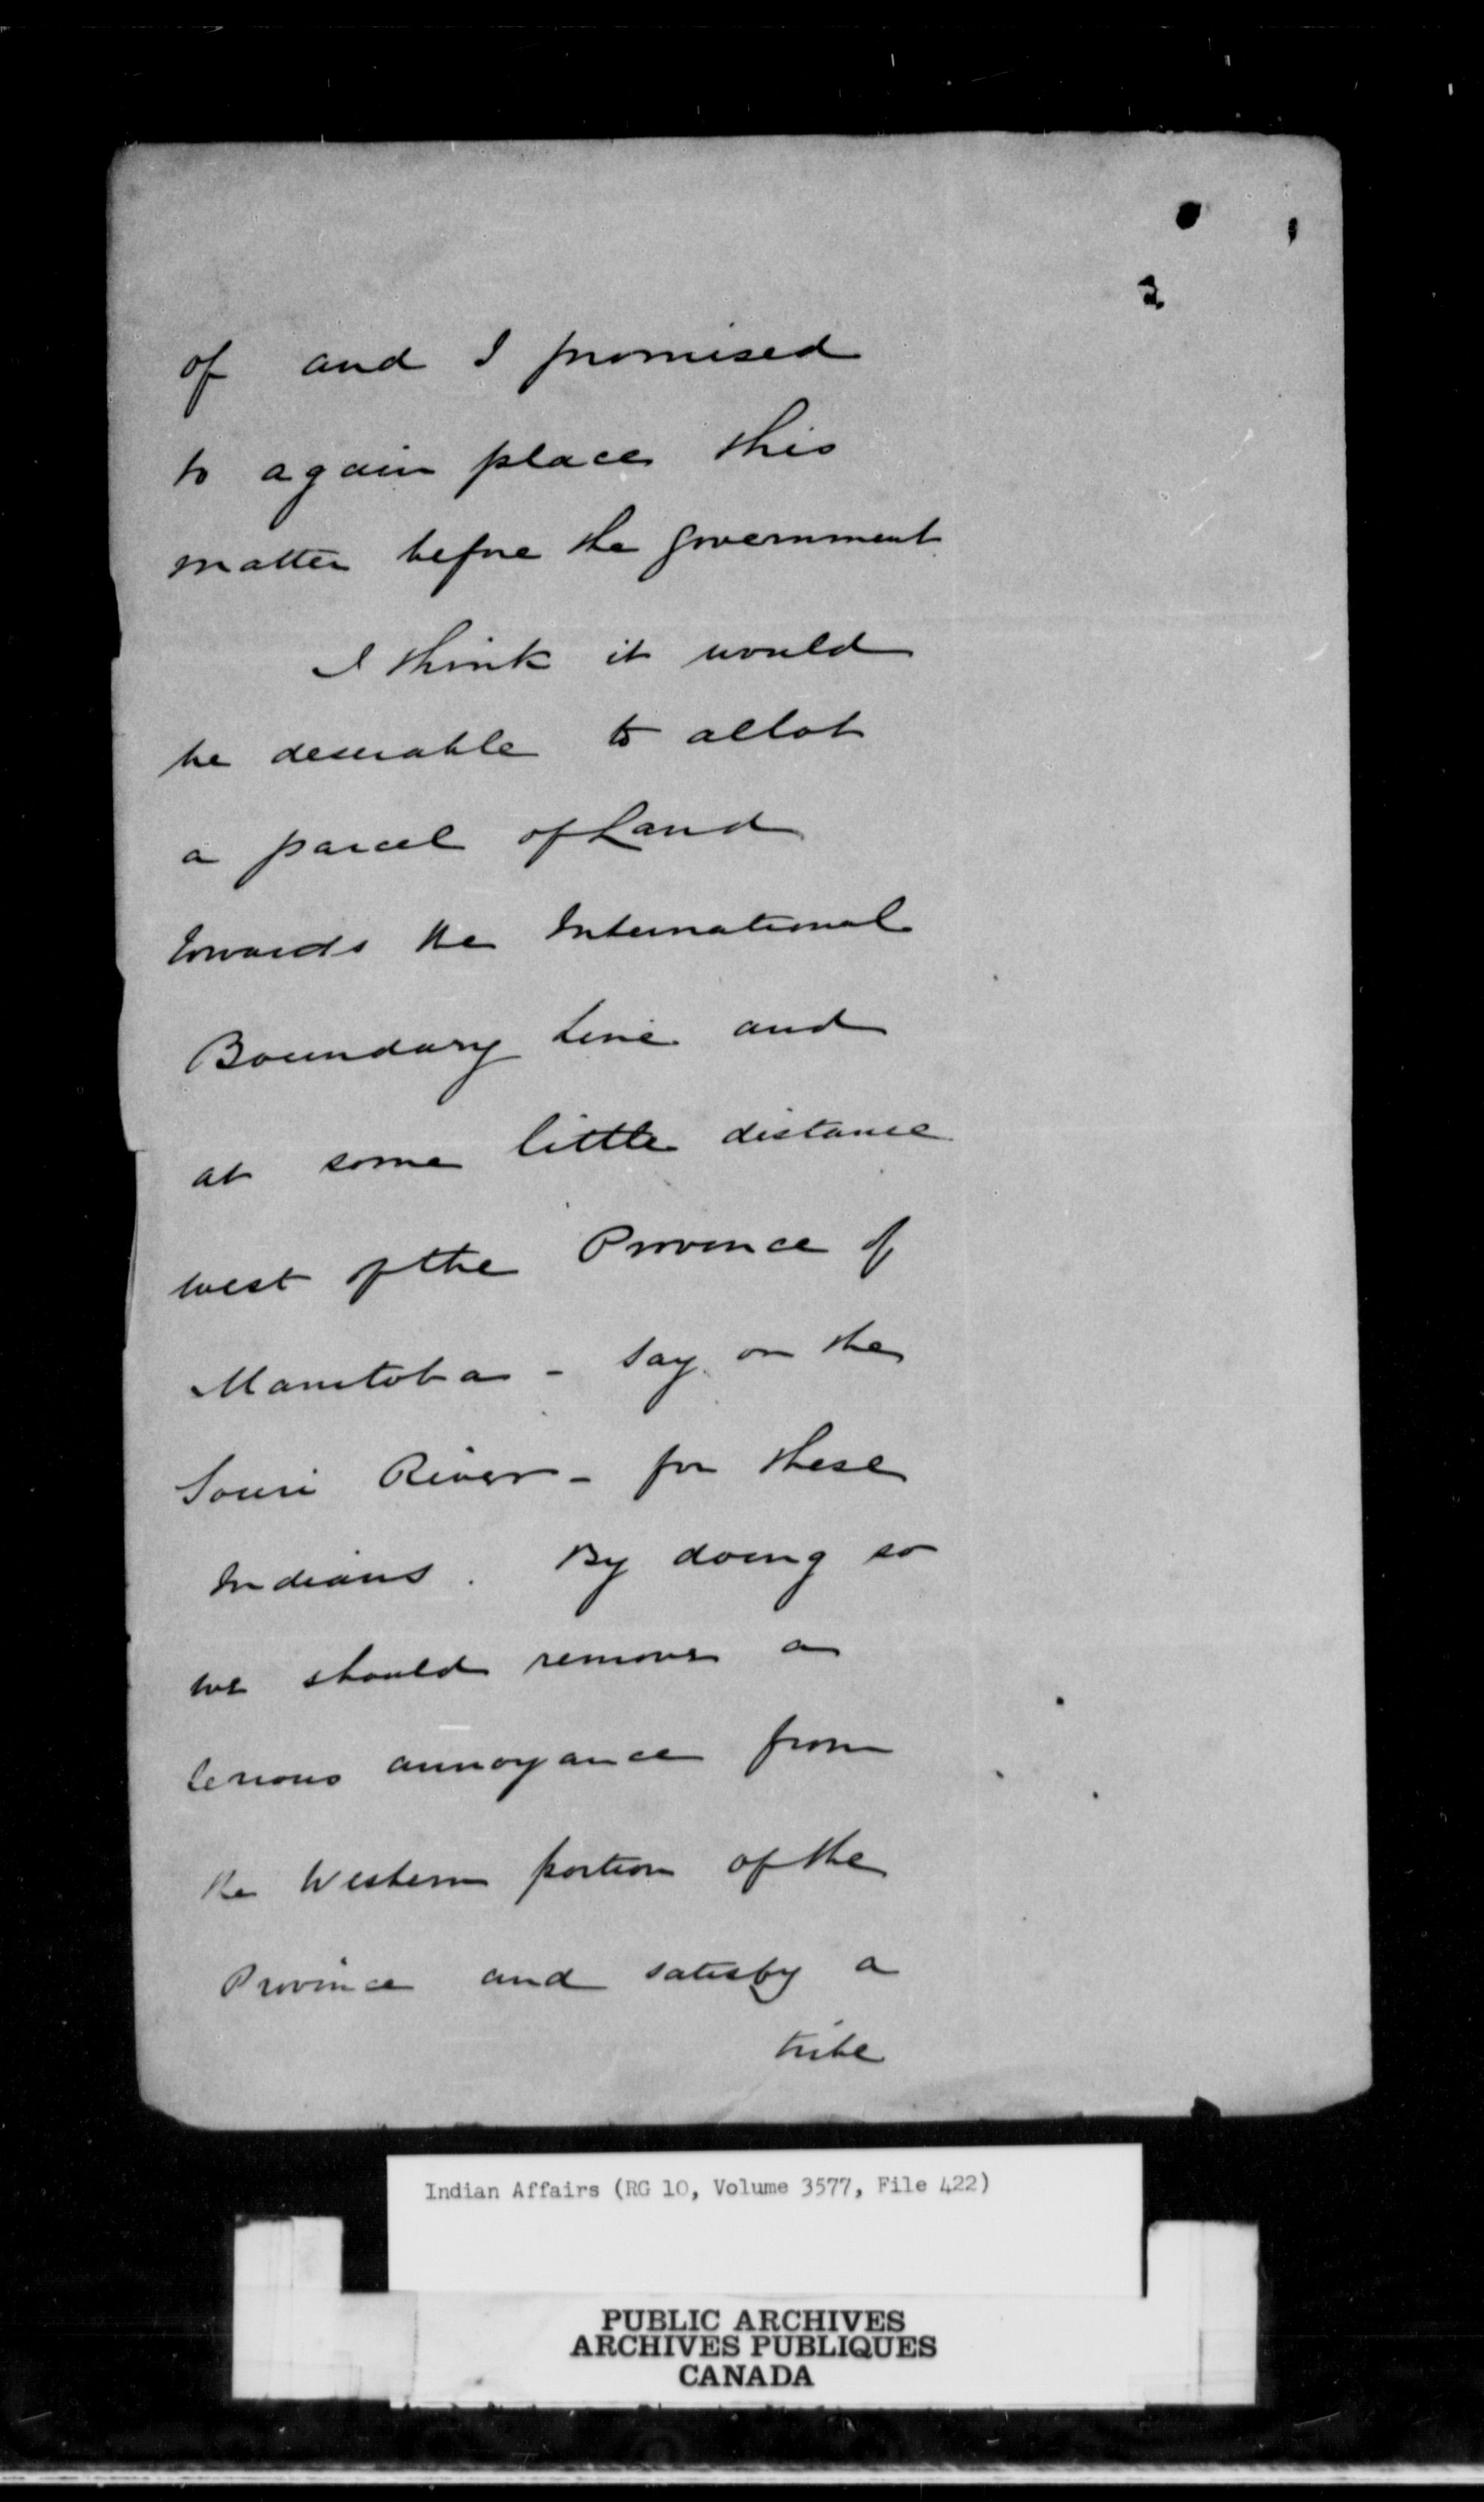 3
of and I promised
to again place this
matter before the Government
I think it would
be desirable to allot
a parcel of Land
towards the International
Boundary Line and
at some little distance
west of the Province of
Manitoba - say on the
Souri River - for these
Indians. By doing so
we should remove a
serious annoyance from
the Western portion of the
Province and satisfy a
tribe
Indian Affairs (RG 10, Volume 3577, File 422)
PUBLIC ARCHIVES
ARCHIVES PUBLIQUES
CANADA